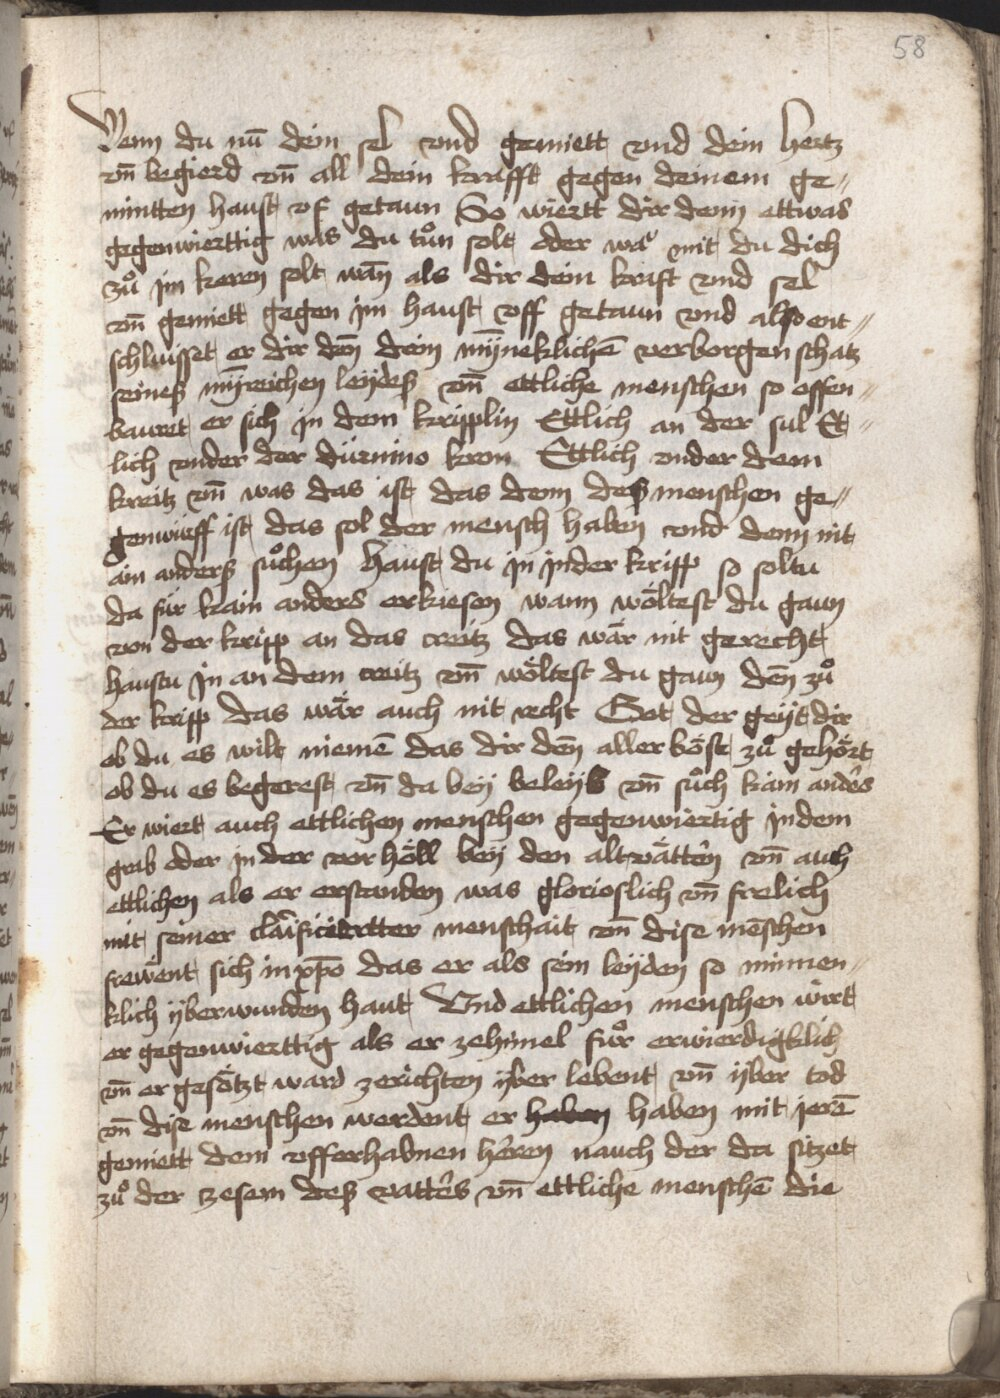 58
Wenn du nū dein sel vnd gemiett vnd dein hertz
vn̄ begierd vn̄ all dein krafft gegen deinem ge〃
mintten haust vf getaun So wiertt dir denn ettwas
gegenwierttig was du tůn solt oder wa mit du dich
zů jm keren solt wān als dir dein kraft vnd sel
vn̄ gemiett gegen jm haust vff getaun vnd also ent〃
schluisset er dir den̄ dein mȳneklichē verborgen schatz
seines mȳreichen leÿdes vn̄ ettliche menschen so offen〃
bauret er sich jn dem kripplin Ettlich an der sul Et〃
lich vnder der dürnino kron Ettlich vnder dem
kreitz vn̄ was das ist das dem des menschen ge〃
genwürff ist das sol der mensch haben vnd denn nit
ain anders sůchen Haust du jn jnder kripp so soltu
da für kain anders erkiesen wann wöltest du gaun
von der kripp an das creitz das wär nit gerecht
haustu jn an dem creitz vn̄ wöltest du gaun den̄ zů
der kripp das wär auch nit recht Got der geÿt dir
ob du es wilt niemē das dir den̄ aller böst zů gehört
ob du es begerest vn̄ da beÿ beleÿb vn̄ sůch kain anders
Er wiert auch ettlichen menschen gegenwiertig jndem
grab oder jn der vor höll beÿ den altvättern vn̄ auch
ettlichen als er erstanden was glorioslich vn̄ frelich
mit seiner clarificiertter menschait vn̄ dise mēschen
frewent sich in xp̄o das er als sein leÿden so minnen〃
klich ÿberwunden haut Vnd ettlichen menschen wirt
er gegenwierttig als er zehimel fůr erwierdigklich
vn̄ er gesötzt ward zerichten ÿber lebent vn̄ ÿber tod
vn̄ dise menschen werdent er haben haben mit jerē
gemiett dem vfferhabnen herren nauch der da sitzet
zů der zesem des vatters vn̄ ettliche menschē die